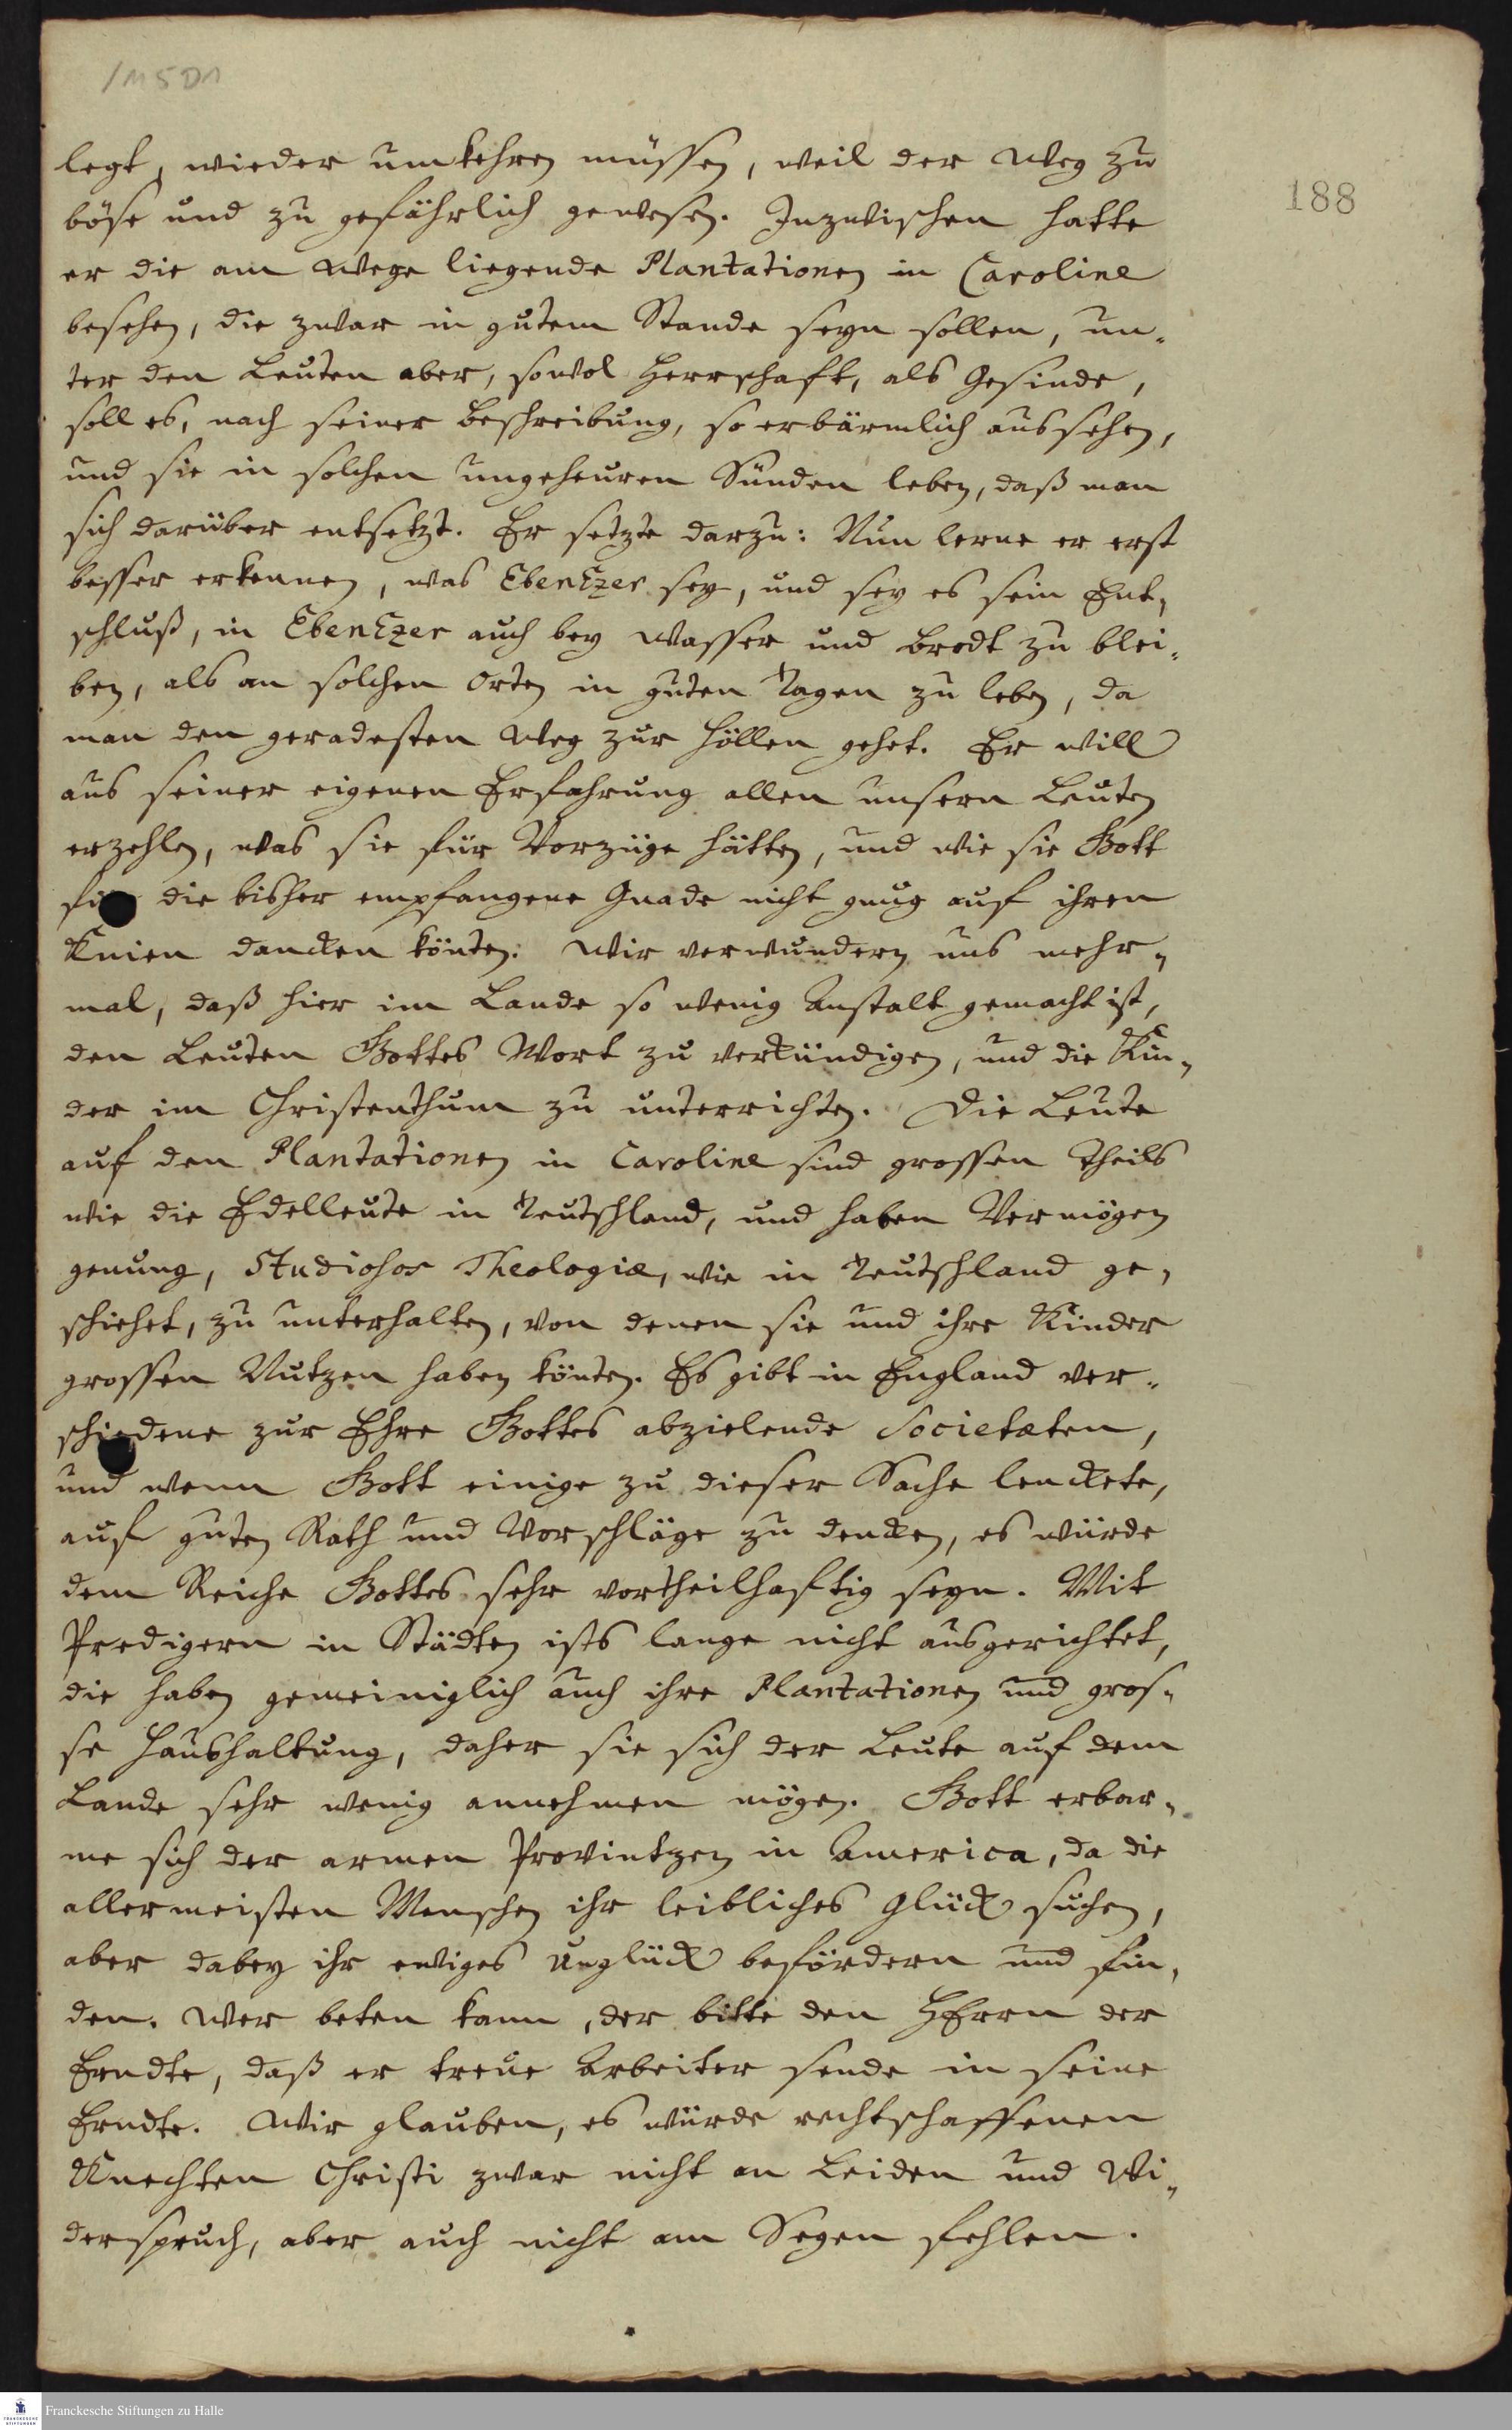 /M 5 D1
188
legt, wieder umkehren müssen, weil der Weg zu
böse und zu gefährlich gewesen. Inzwischen hatte
er die am Wege liegende Plantationen in Caroline
besehen, die zwar in gutem Stande seyn sollen, un-
ter den Leuten aber, sowol Herrschaft, als Gesinde,
soll es, nach seiner Beschreibung, so erbärmlich aussehen,
und sie in solchen ungeheuren Sünden leben, daß man
sich darüber entsetzt. Er setzte darzu: Nun lerne er erst
besser erkennen, was EbenEzer sey, und sey es sein Ent-
schluß, in EbenEzer auch bey Wasser und Brodt zu blei-
ben, als an solchen Orten in guten Tagen zu leben, da
man den geradesten Weg zur Höllen gehet. Er will
aus seiner eigenen Erfahrung allen unsern Leuten
erzehlen, was sie für Vorzüge hätten, und wie sie Gott
für die bisher empfangene Gnade nicht gnug auf ihren
Knien dancken könten. Wir verwundern uns mehr-
mal, daß hier im Lande so wenig Anstalt gemacht ist,
den Leuten Gottes Wort zu verkündigen, und die Kin-
der im Christenthum zu unterrichten. Die Leute
auf den Plantationen in Caroline sind grossen Theils
wie die Edelleute in Teutschland, und haben Vermögen
genung, Studiosos Theologiæ, wie in Teutschland ge-
schiehet, zu unterhalten, von denen sie und ihre Kinder
grossen Nutzen haben könten. Es gibt in England ver-
schiedene zur Ehre Gottes abzielende Societæten,
und wenn Gott einige zu dieser Sache lenckete,
auf guten Rath und Vorschläge zu dencken, es würde
dem Reiche Gottes sehr vortheilhafftig seyn. Mit
Predigern in Städten ists lange nicht ausgerichtet,
die haben gemeiniglich auch ihre Plantationen und gros-
se Haushaltung, daher sie sich der Leute auf dem
Lande sehr wenig annehmen mögen. Gott erbar-
me sich der armen Provintzen in America, da die
allermeisten Menschen ihr leibliches Glück suchen,
aber dabey ihr ewiges Unglück befördern und fin-
den. Wer beten kann, der bitte den HErrn der
Erndte, daß er treue Arbeiter sende in seine
Erndte. Wir glauben, es würde rechtschaffenen
Knechten Christi zwar nicht an Leiden und Wi-
derspruch, aber auch nicht am Segen fehlen.
Franckesche Stiftungen zu Halle
FRANCKESCHE
STIFTUNGEN